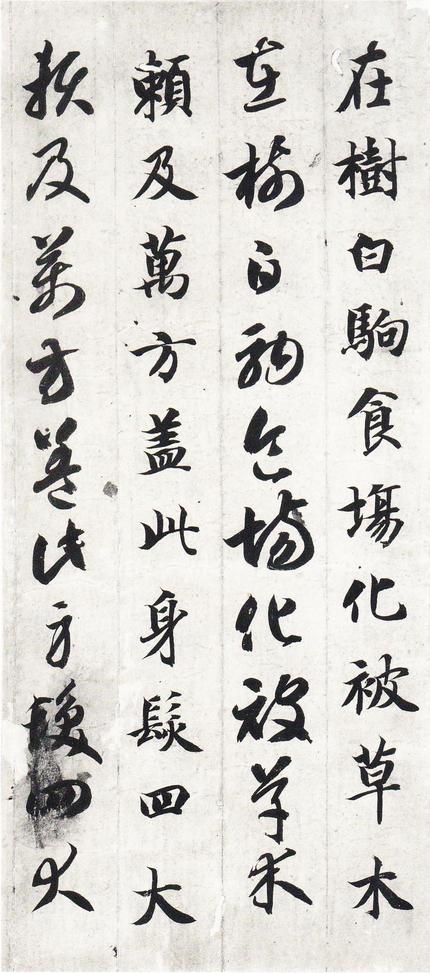 在樹白駒食場化被草木
在樹白駒食場化被草木
頼及萬方盖此身髮四大
頼及萬方盖此身髮四大